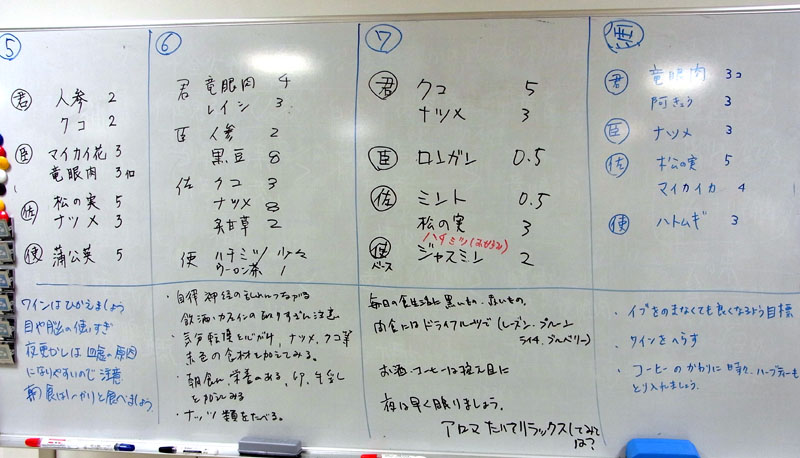 ⑤
君 人参 2
クコ 2
臣 マイカイ花 3
竜眼肉 3個
佐 松の実 5
ナツメ 3
使 蒲公英 5
ワインはひかえましょう
目や脳の使いすぎ
夜更かしは血虚の原因
になりやすいので注意
朝食はしっかりと食べましょう
⑥
君 竜眼肉 4
レイシ 3
臣 人参 2
黒豆 8
佐 クコ 3
ナツメ 8
甘草 2
使 ハチミツ 少々
ウーロン茶 1
・自律神経の乱れにつながる
飲酒・カフェインの取りすぎに注意
・気分転換を心がけ、ナツメ、クコ等
赤色の食材を加えてみる。
・朝食に栄養のある、卵、牛乳
を加えてみる
・ナッツ類をたべる。
⑦
君 クコ 5
ナツメ 3
臣 ロンガン 0.5
佐 ミント 0.5
松の実 3
ハチミツ
使 ジャスミン 2
ベース
毎日の食生活に黒いもの、赤いもの、
間食にはドライフルーツで (レーズン、プルーン
ライチ、ブルーベリー)
お酒、コーヒーは控え目に
夜は早く眠りましょう。
アロマたいてリラックスしてみては?
君 竜眼肉 3コ
阿きょう 3
臣 ナツメ 3
佐 松の実 5
マイカイカ 4
使 ハトムギ 3
・イブをのまなくても良くなるよう目標
・ワインをへらす
・コーヒーのかわりに時々、ハーブティーも
とり入れましょう。